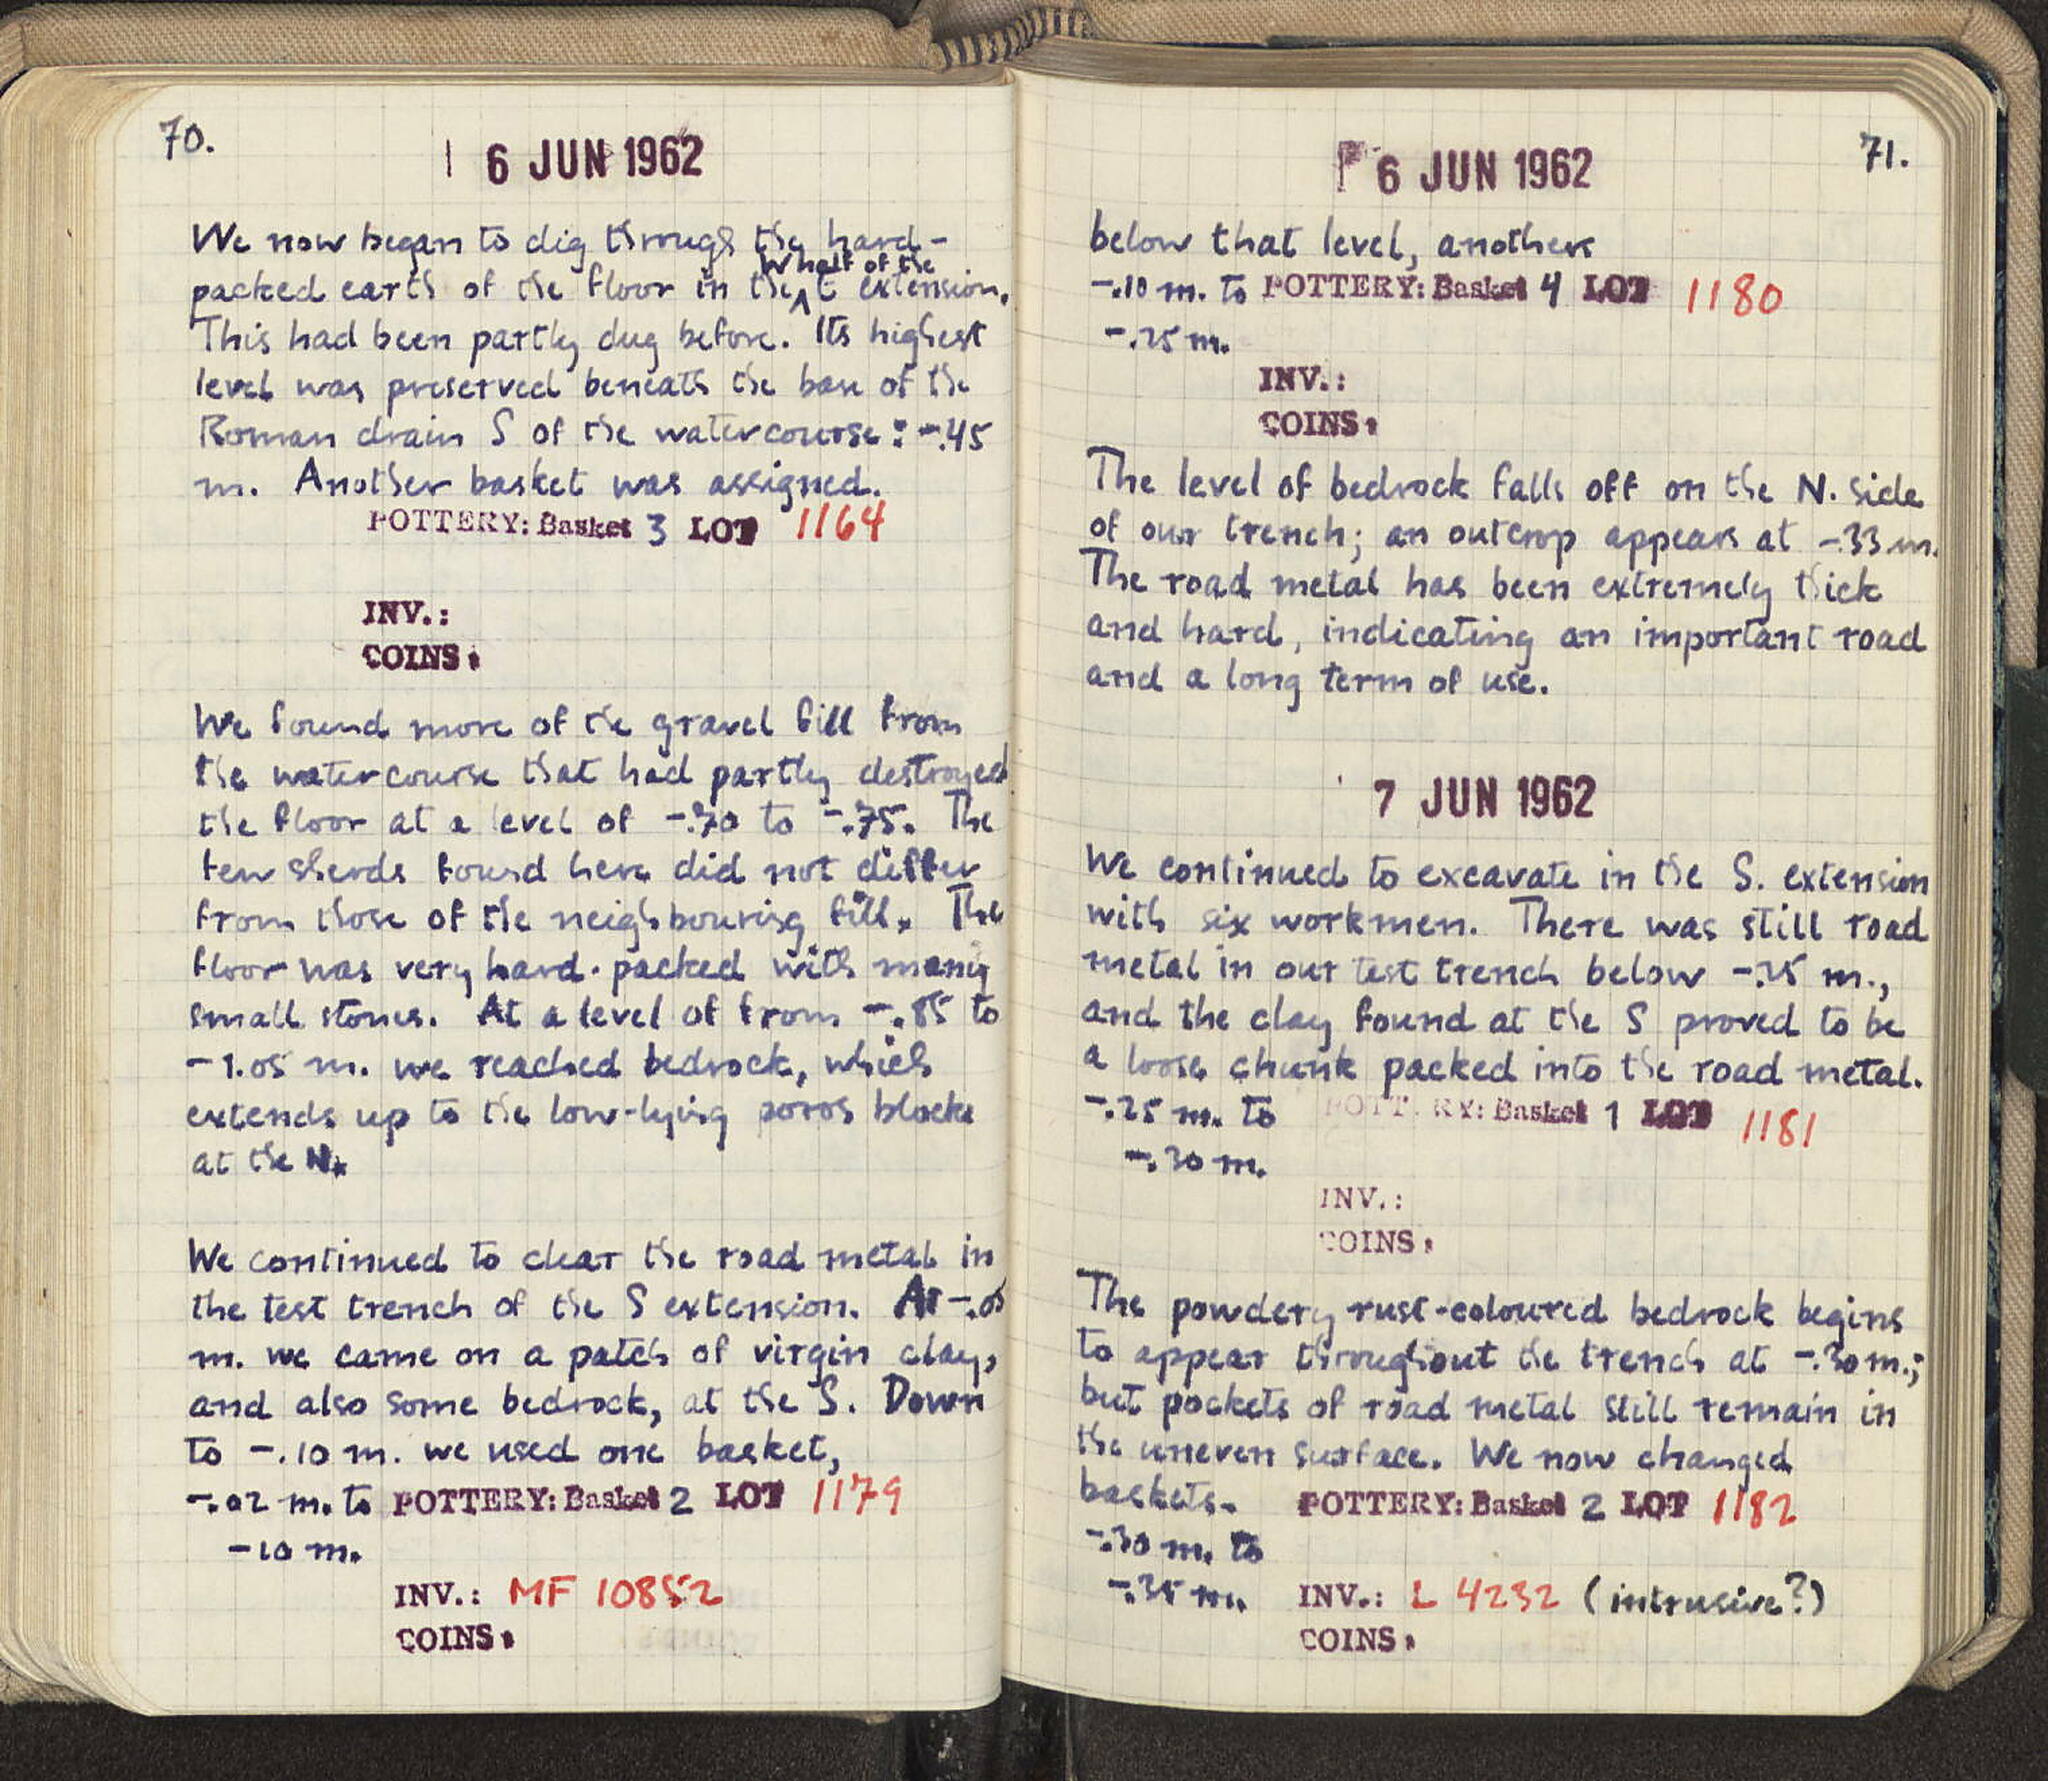 70.
6 JUN 1962
We now began to dig through the hard-
W half of the
packed earth of the floor in the ^ t extension.
This had been partly dug before. Its highest
level was preserved beneath the base of the
Roman drain S of the watercourse: -.45
m. Another basket was assigned.
POTTERY: Basket 3 LOT 1164
INV.:
COINS:
We found more of the gravel fill from
the watercourse that had partly destroyed
the floor at a level of -.70 to -.75. The
few sherds found here did not differ
from those of the neighbouring fill. The
floor was very hard-packed with many
small stones. At a level of from -.85 to
-1.05 m. we reached bedrock, which
extends up to the low-lying poros blocks
at the N.
We continued to clear the road metal in
the test trench of the S extension. At -.05
m. we came on a patch of virgin clay,
and also some bedrock, at the S. Down
to -.10 m. we used one basket,
-.02 m. to POTTERY: Basket 2 LOT 1179
-10 m.
INV.: MF 10852
COINS:
6 JUN 1962
71.
below that level, another
-.10 m. to POTTERY: Basket 4 LOT 1180
-.25 m.
INV.:
COINS:
The level of bedrock falls off on the N. side
of our trench; an outcrop appears at -.33 m.
The road metal has been extremely thick
and hard, indicating an important road
and a long term of use.
7 JUN 1962
We continued to excavate in the S. extension
with six workmen. There was still road
metal in our test trench below -.25 m.,
and the clay found at the S proved to be
a loose chunk packed into the road metal.
-.25 m. to POTTERY: Basket 1 LOT 1181
-.30 m.
INV.:
COINS:
The powdery rust-coloured bedrock begins
to appear throughout the trench at -.30 m.;
but pockets of road metal still remain in
the uneven surface. We now changed
baskets. POTTERY: Basket 2 LOT 1182
-.30 m. to
-.35 m. INV.: L 4232 (intrusive?)
COINS: